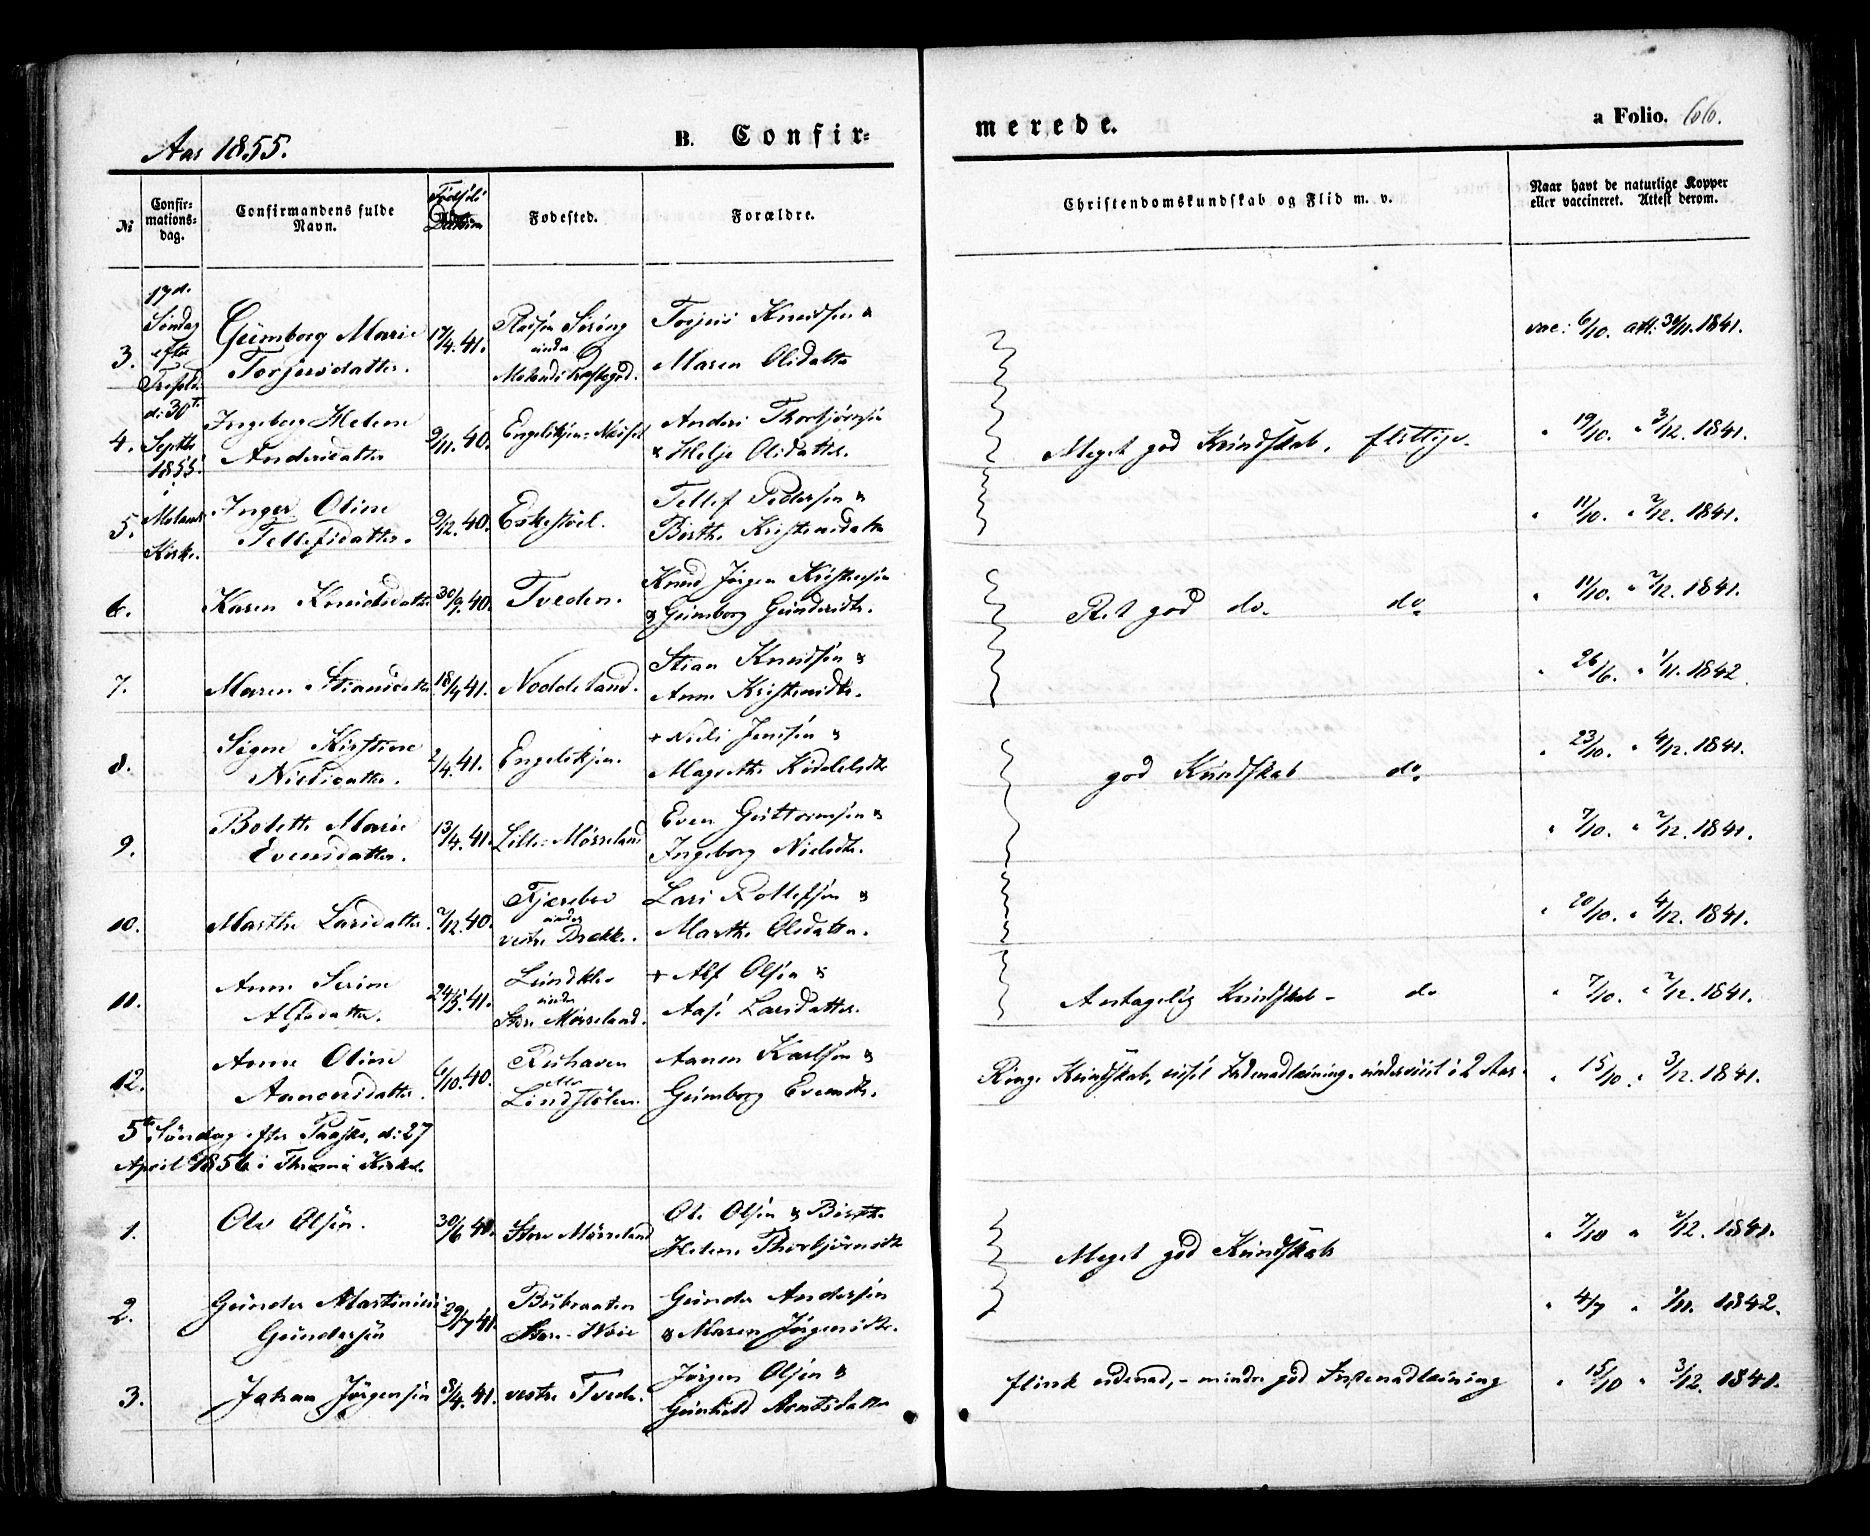 Aar 1855.
B. Confir-
merede.
a Folio. 66.
№
Confir-
mations-
dag.
Confirmandens fulde
Navn.
Fødested.
Forældre.
Christendomskundskab og Flid m. v.
Naar havt de naturlige Kopper
eller vaccineret. Attest derom.
17d.
Søndag
efter
Trefold.
d: 30te
Septbr
1855
i
Molands
Kirke.
3. Gunborg Marie
Torjersdatter.
17/4.41.
under
Molands Præstegd.
Torjer Knudsen &
Maren Olsdatter
vac: 6/10. att: 1841.
4. Ingeborg Helene
Andersdatter
9/11.40.
Engelskjøn
Anders Thorbjørnsen
& Helje Olsdatter.
Meget god Kundskab, flittige.
" 19/10. " 3/12. 1841.
5. Inger Oline
Tellefsdatter.
9/12.40.
Eskestøel.
Tellef Pedersen &
Birthe Kristensdatter
" 11/10. " 2/12. 1841.
6. Karen Knudsdatter
30/9.40.
Tveden.
Knud Jørgen Kristensen
& Gunborg Gundersdtr.
Ret god do. do
" 11/10. " 2/12. 1841.
7. Maren Stiansdatter
18/4.41.
Noddeland.
Stian Knudsen &
Anne Kristensdtr.
" 26/6. " 1/11. 1842.
8. Signe Kirstine
Nielsdatter.
2/4.41.
Engelskjøn.
+ Niels Jensen &
Magrethe Kiddelsdtr
god Kundskab do.
" 23/10. " 4/12. 1841.
9. Bolette Marie
Evensdatter.
13/4.41.
Lille-Mørreland
Even Guttormsen &
Ingeborg Nielsdtr.
" 7/10. " 2/12. 1841.
10. Marthe Larsdatter.
2/12.40.
Fjærebov
under
vestre Brække.
Lars Rollefsen &
Marthe Olsdatter.
" 20/10. " 4/12. 1841.
11. Anne Serine
Alfsdatter.
24/5.41.
under
Store Mørreland.
+ Alf Olsen &
Aase Larsdatter.
Antagelig Kundskab - do
" 7/10. " 2/12. 1841.
12. Anne Oline
Aanonsdatter.
6/10.40.
Ruhaven
eller
Lindstølen.
Aanon Karlsen &
Gunborg Evensdtr.
Ringe Kundskab, ussel Indenadlæsning, underviist i 2 Aar.
" 15/10. " 3/12. 1841.
5te Søndag efter Paaske, d: 27
April 1856 i Thromø Kirke.
1. Ole Olsen.
30/6.40.
Store Mørreland
Ole Olsen & Birthe
Helene Thorbjørnsdtr
Meget god Kundskab
" 7/10 " 2/12. 1841.
2. Gunder Martinius
Gundersen
29/7.41.
Bubraaten
Store-Woie
Gunder Andersen
& Maren Jørgensdtr.
" 4/7 " 1/11. 1842.
3. Johan Jørgensen
8/4.41.
vestre Tvede.
Jørgen Olsen &
Gunhild Arentsdatter
flink udenad, - mindre god Indenadlæsning
" 15/10 " 3/12. 1841.